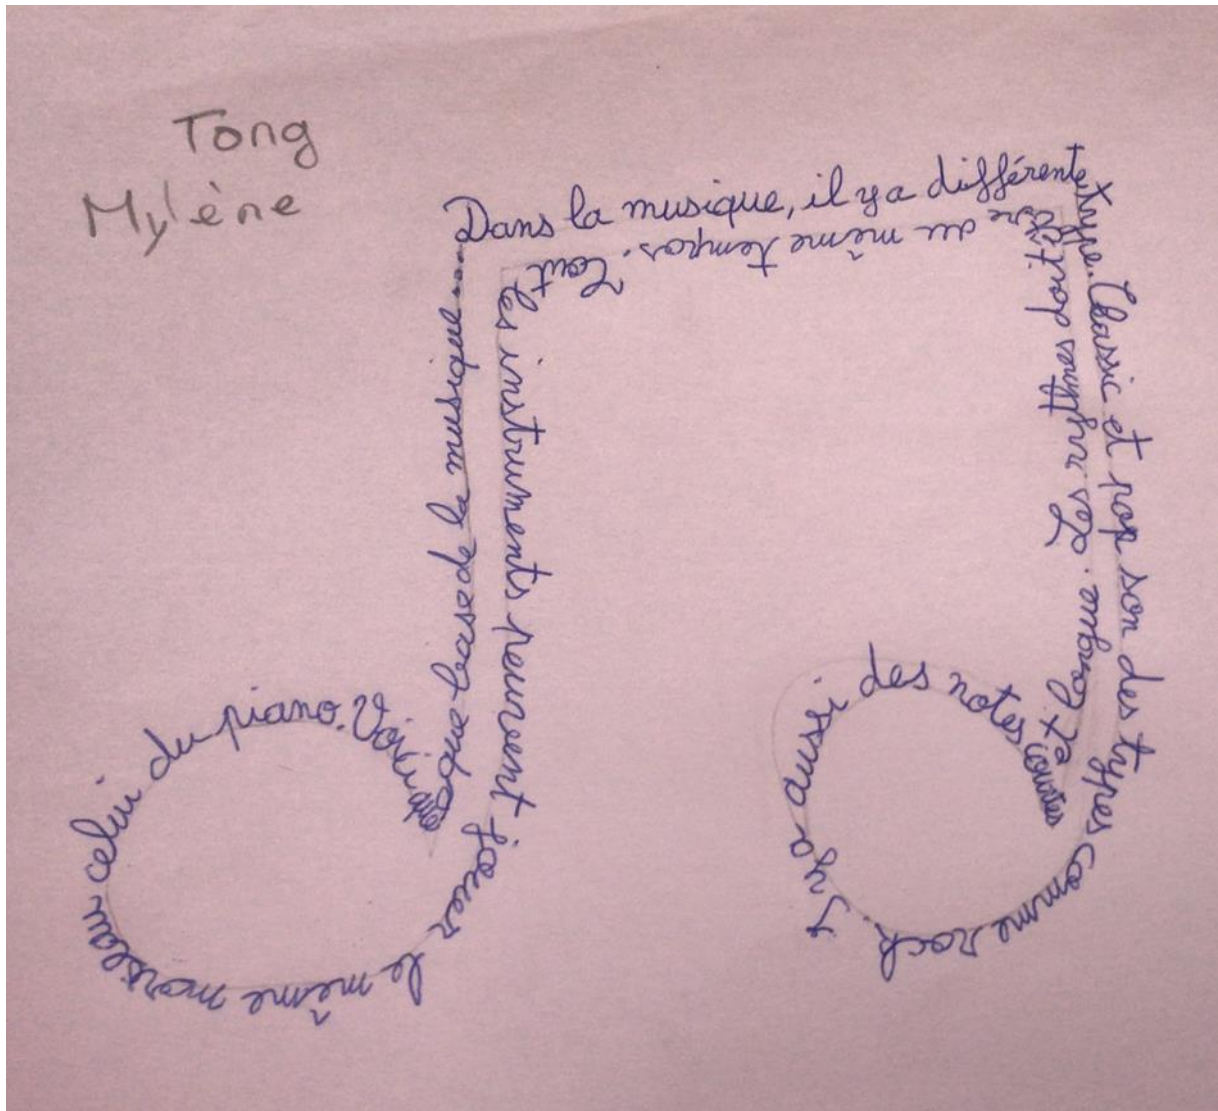 Tong
Mylène
Dans la musique, il y a différente
type. Classic et pop son des types comme rock.
Il y a aussi des notes courtes
et longue. Les rythmes doit
être au même temps. Tout
les instruments peuvent jouer
le même morseau celui du piano. Voici
que base de la musique....